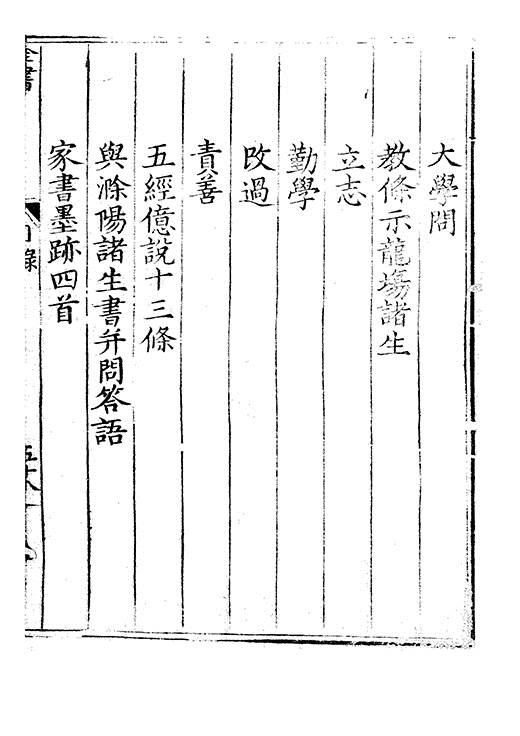 大學問
教條示龍場諸生
立志
勤學
改過
責善
五經億說十三條
與滁陽諸生書并問答語
家書墨跡四首
全書
目錄